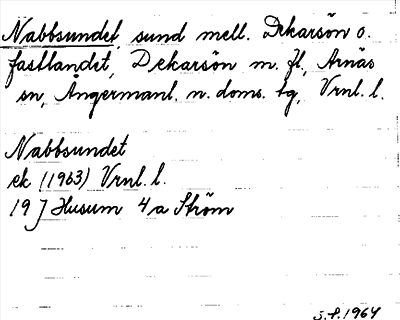 Nabbsundet, sund mell. Dekarsön o.
fastlandet, Dekarsön m. fl., Arnäs
sn, Ångermanl. n. doms. tg, Vrnl. l.
Nabbsundet
ek (1963) Vrnl. l.
19 J Husum 4 a Ström
S.F. 1964